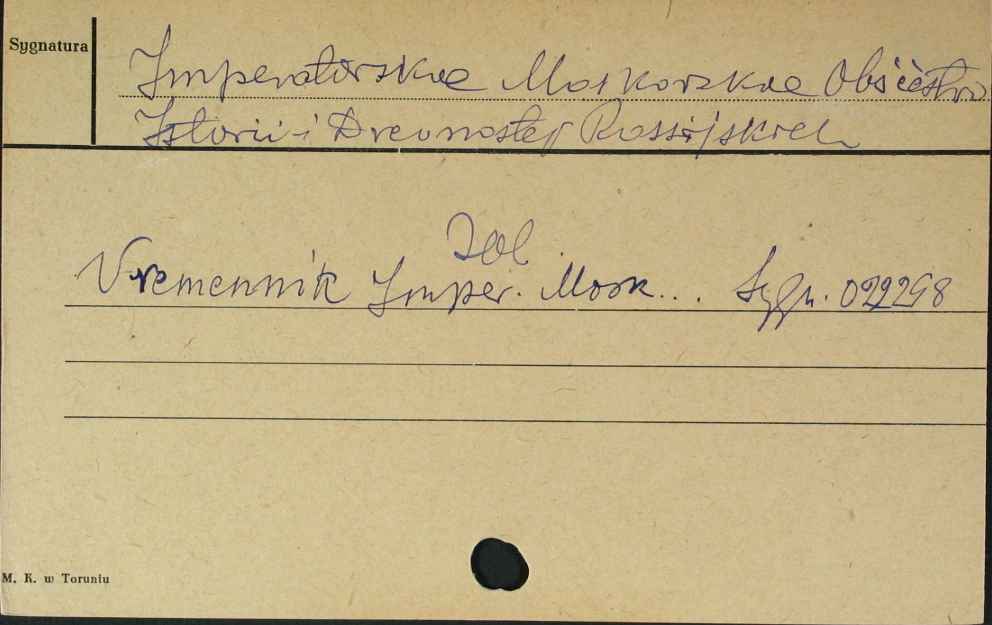 Sygnatura
Imperatorskoe Moskovskoe Obščestvo
Istorii i Drevnostej Rossijskich
Zob.
Vremennik Imper. Mosk... Sygn. 022298
M. K. w Toruniu